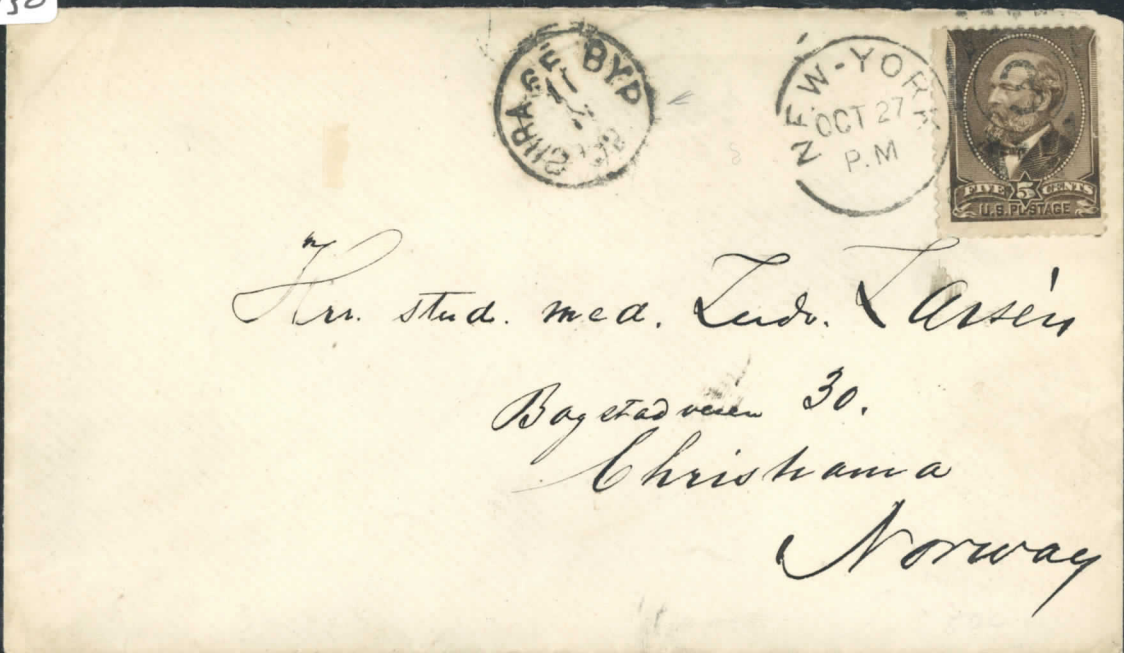 NEW-YORK
OCT 27
P.M
FIVE 5 CENTS
U.S. POSTAGE
BYP
11
Hrr. stud. med. Ludv. Larsén
Bogstadveien 30.
Christiania
Norway